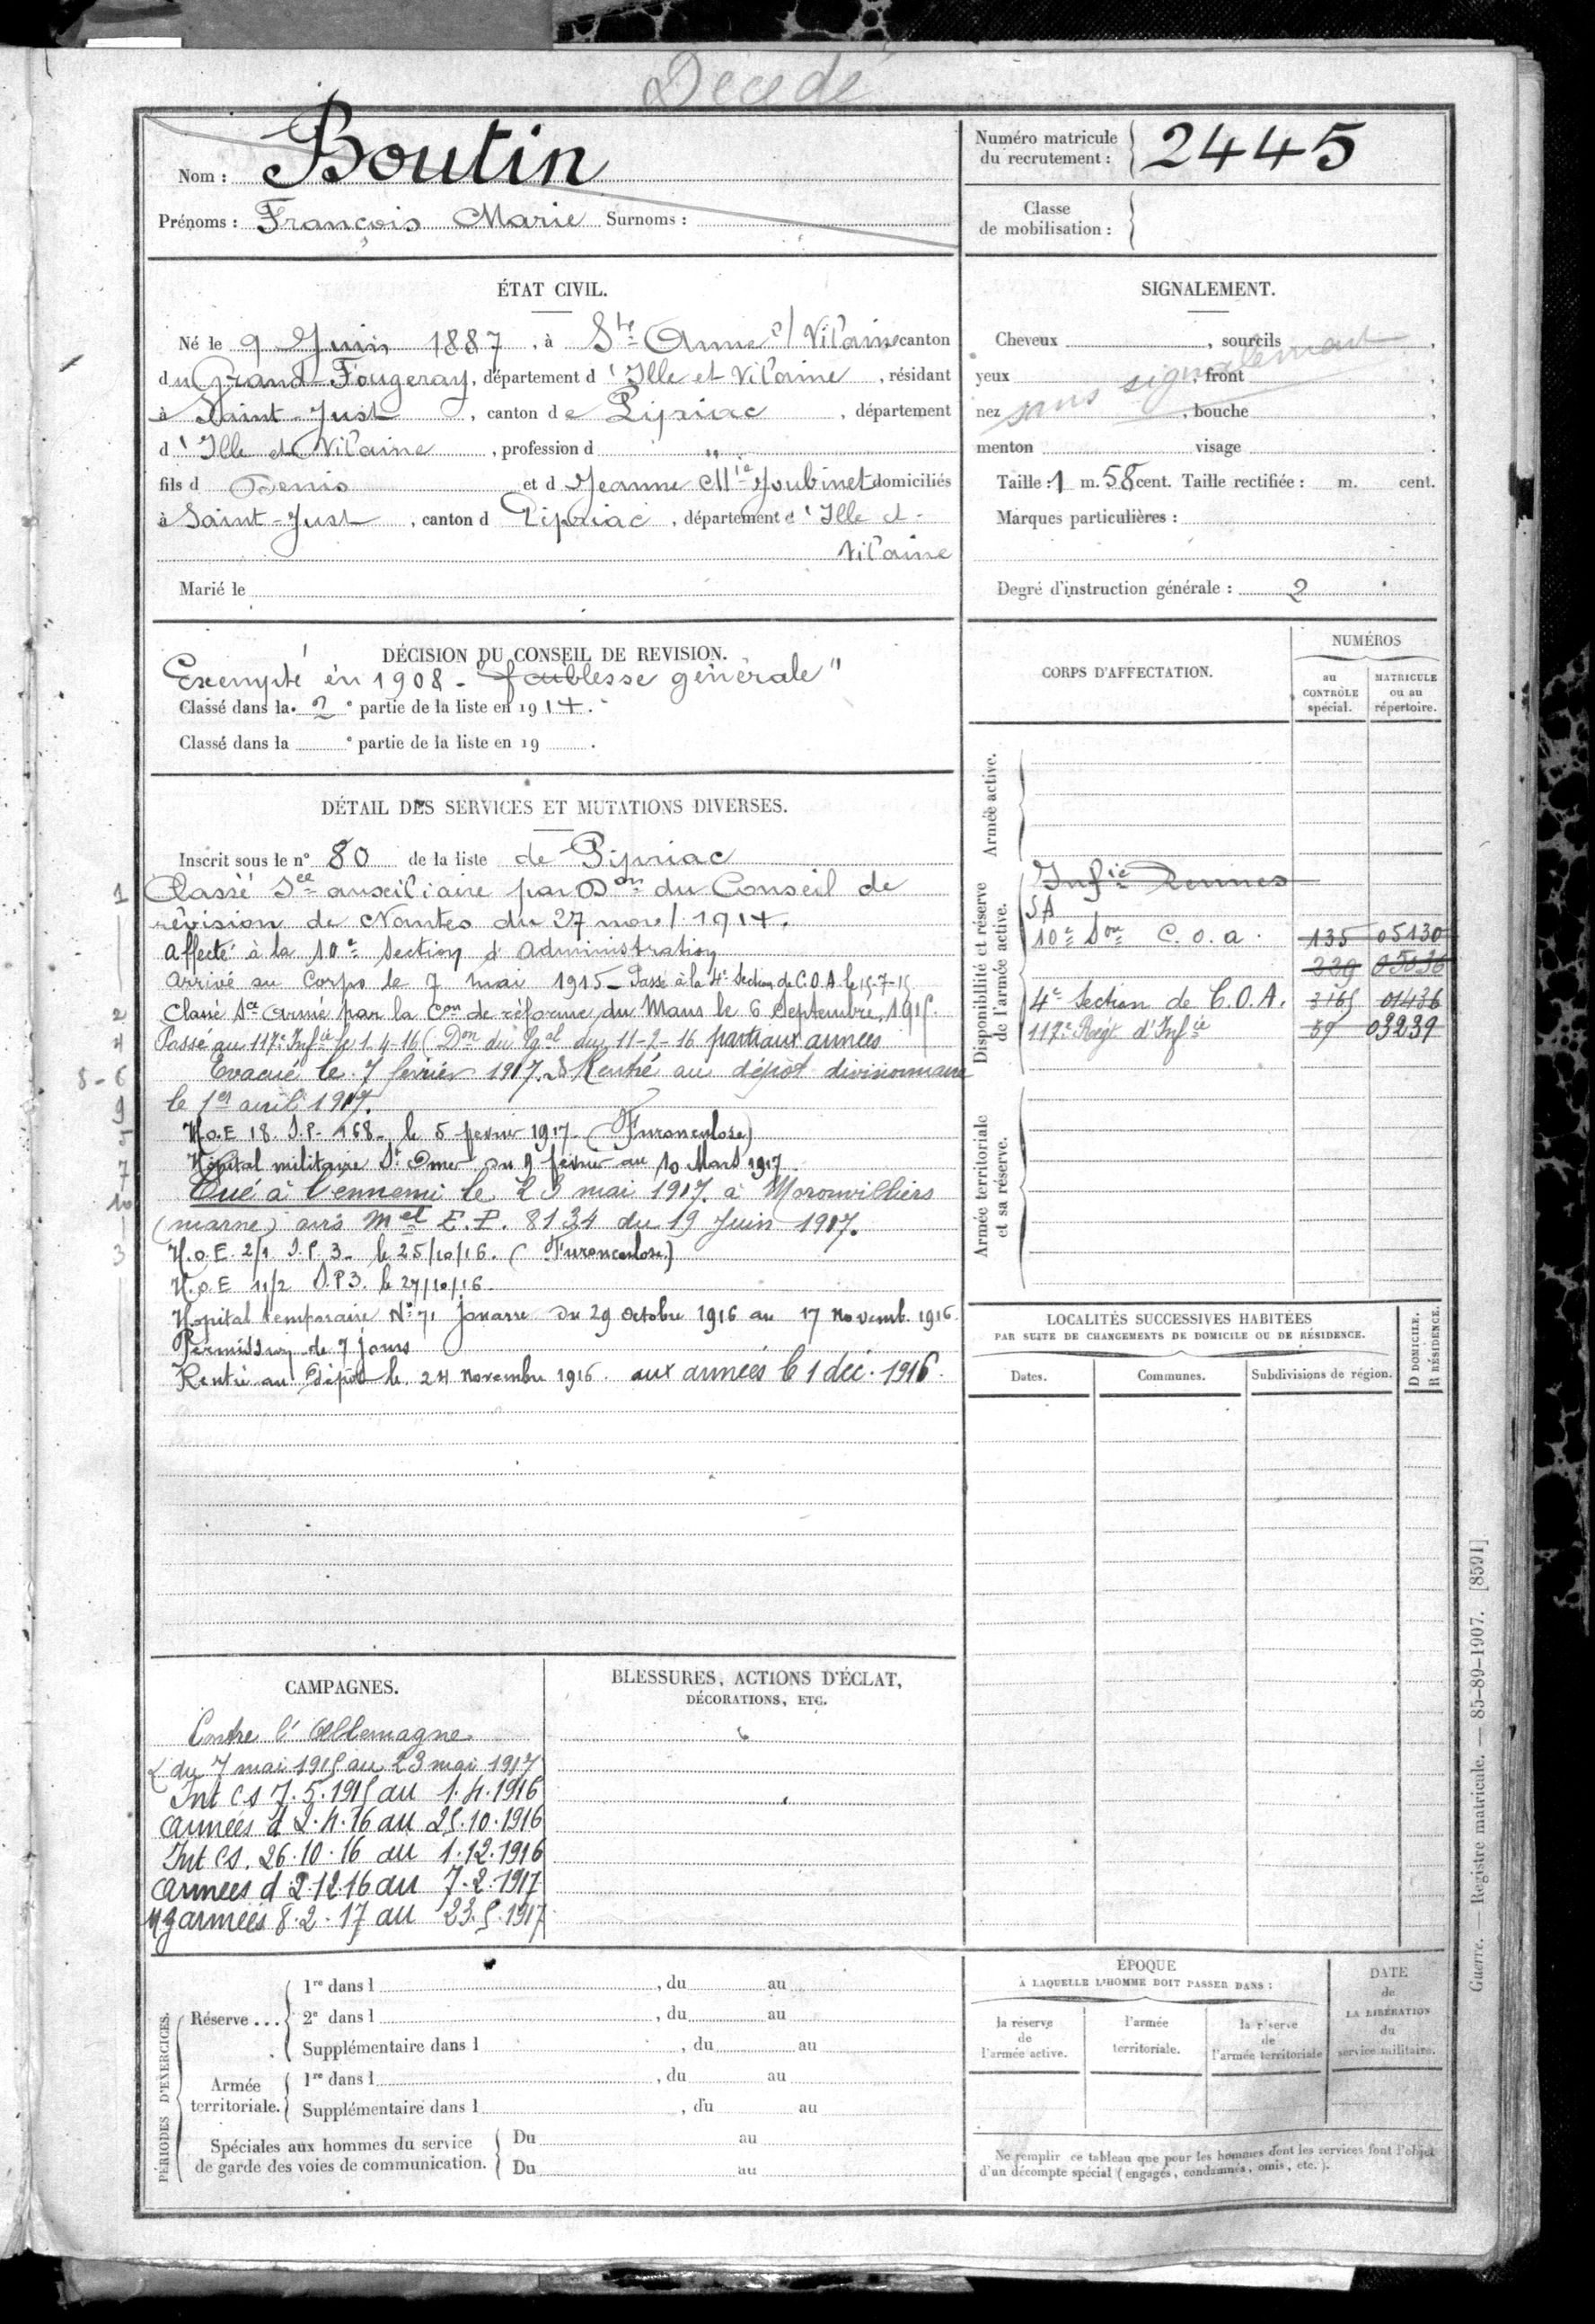 Décédé
Nom : Boutin
Prénoms : François Marie Surnoms :
Numéro matricule
du recrutement : 2445
Classe
de mobilisation :
ÉTAT CIVIL.
Né le 9 Juin 1887, à Ste Anne s/ Vilaine canton
du Grand-Fougeray, département d'Ille et Vilaine, résidant
à Saint-Just, canton de Pipriac, département
d'Ille et Vilaine, profession d "
fils d Denis et d Jeanne Mie Joubinet domiciliés
à Saint-Just, canton d Pipriac, département d'Ille et-
Vilaine
Marié le
SIGNALEMENT.
Cheveux , sourcils ,
yeux , front ,
nez , bouche ,
sans signalement
menton visage .
Taille : 1 m. 58 cent. Taille rectifiée : m. cent.
Marques particulières :
Degré d'instruction générale : 2
DÉCISION DU CONSEIL DE REVISION.
Exempté en 1908 - "faiblesse générale"
Classé dans la 2e partie de la liste en 1914.
Classé dans la e partie de la liste en 19 .
DÉTAIL DES SERVICES ET MUTATIONS DIVERSES.
Inscrit sous le n° 80 de la liste de Pipriac
1 Classé Sce auxiliaire par Don du Conseil de
révision de Nantes du 27 nov/ 1914.
Affecté à la 10e Section d'Administration
Arrivé au Corps le 7 mai 1915 - Passé à la 4e Section de C.O.A. le 15-7-15
2 Classé Sce Armé par la Con de réforme du Mans le 6 Septembre 1915.
4 Passé au 117e Infie le 1-4-16 (Don du Gal du 11-2-16 parti aux armées
8-6 Evacué le 7 février 1917. Rentré au dépôt divisionnaire
9 le 1er avril 1917.
5 H.O.E 18. S.P. 168 - le 5 fevrier 1917 - (Furonculose)
7 Hôpital militaire St Omer du 9 février au 10 Mars 1917
10 Tué à l'ennemi le 23 mai 1917. à Moronvilliers
(marne) avis Mel E.P. 8134 du 19 Juin 1917.
3 H.O.E. 2/1 S.P. 3 - le 25/10/16. (Furonculose)
H.O.E 11/2 S.P.3. le 27/10/16.
Hopital temporaire N° 71 Jouarre du 29 Octobre 1916 au 17 Novemb. 1916.
Permission de 7 jours
Rentré au Dépôt le 24 Novembre 1916. aux armées le 1 déc. 1916.
CORPS D'AFFECTATION.
NUMÉROS
au
CONTRÔLE
spécial.
MATRICULE
ou au
répertoire.
Armée active.
Disponibilité et réserve
de l'armée active.
Infie Rennes
SA
10e Son C.O.A. 135 05130
239 05036
4e Section de C.O.A. 3165 01436
117e Regt d'Infie 59 03239
Armée territoriale
et sa réserve.
LOCALITÉS SUCCESSIVES HABITÉES
PAR SUITE DE CHANGEMENTS DE DOMICILE OU DE RÉSIDENCE.
Dates.
Communes.
Subdivisions de région.
D DOMICILE.
R RÉSIDENCE.
CAMPAGNES.
Contre l'Allemagne
du 7 mai 1915 au 23 mai 1917
Int CS 7.5.1915 au 1.4.1916
armées d 2.4.16 au 25.10.1916
Int CS. 26.10.16 au 1.12.1916
armées d 2.12.16 au 7.2.1917
armées 8.2.17 au 23.5.1917
BLESSURES, ACTIONS D'ÉCLAT,
DÉCORATIONS, ETC.
PÉRIODES D'EXERCICES.
Réserve ...
1re dans l , du au
2e dans l , du au
Supplémentaire dans l , du au
Armée
territoriale.
1re dans l , du au
Supplémentaire dans l , du au
Spéciales aux hommes du service
de garde des voies de communication.
Du au
Du au
ÉPOQUE
À LAQUELLE L'HOMME DOIT PASSER DANS :
la réserve
de
l'armée active.
l'armée
territoriale.
la réserve
de
l'armée territoriale
DATE
de
LA LIBÉRATION
du
service militaire.
Ne remplir ce tableau que pour les hommes dont les services font l'objet
d'un décompte spécial (engagés, condamnés, omis, etc.).
Guerre. — Registre matricule. — 85-89-1907. [8591]